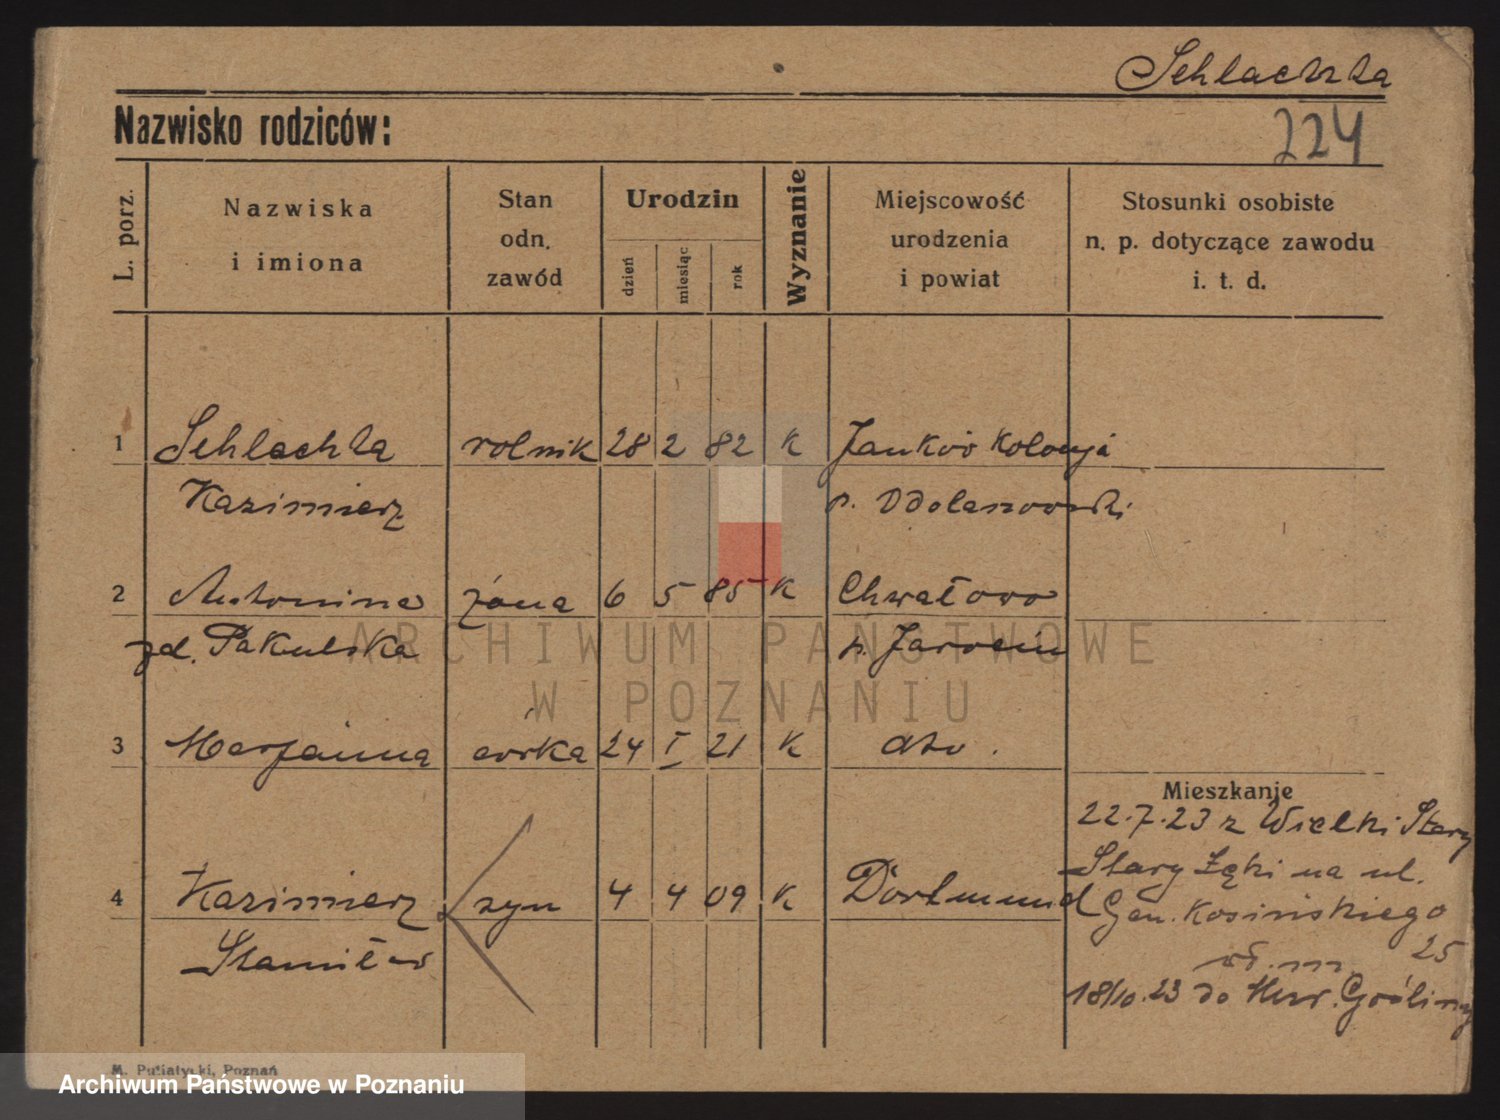 Schlachta
Nazwisko rodziców:
224
L. porz.
Nazwiska
i imiona
Stan
odn.
zawód
Urodzin
dzień
miesiąc
rok
Wyznanie
Miejscowość
urodzenia
i powiat
Stosunki osobiste
n. p. dotyczące zawodu
i. t. d.
1 Schlachta rolnik 28 2 82 K Janków Kolonja
Kazimierz p. Odolanowski
2 Antonina żona 6 5 85 K Chwałowo
zd. Pakulska p. Jarocin
3 Marjanna córka 24 I 21 K dto.
4 Kazimierz syn 4 4 09 K Dortmund
Stanisław
Mieszkanie
22.7.23 z Wielki Stary
Stary Łęki na ul.
Gen. Kosińskiego
25
18/10.23 do
M. Putiatycki, Poznań
ARCHIWUM PAŃSTWOWE
W POZNANIU
Archiwum Państwowe w Poznaniu